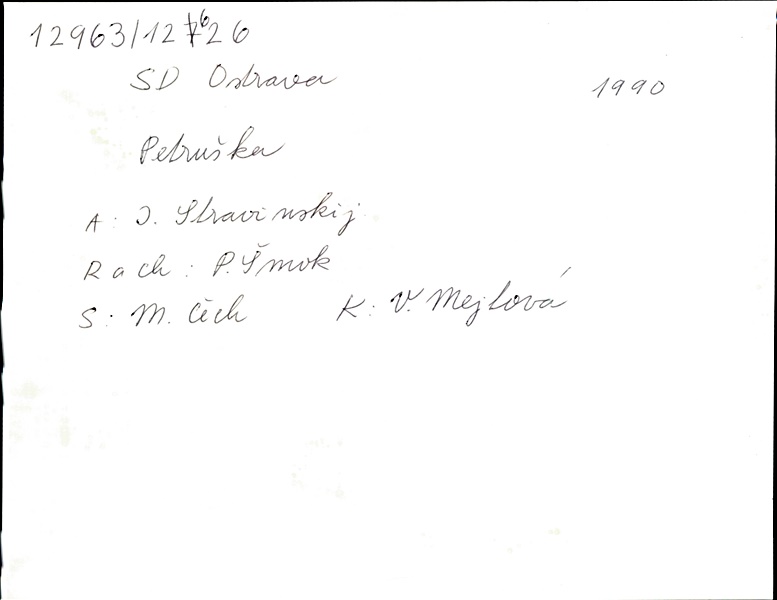 12963/12626
SD Ostrava
1990
Petruška
A: I. Stravinskij
R a ch : P. Šmok
S: M. Čech K: V. Mejlová